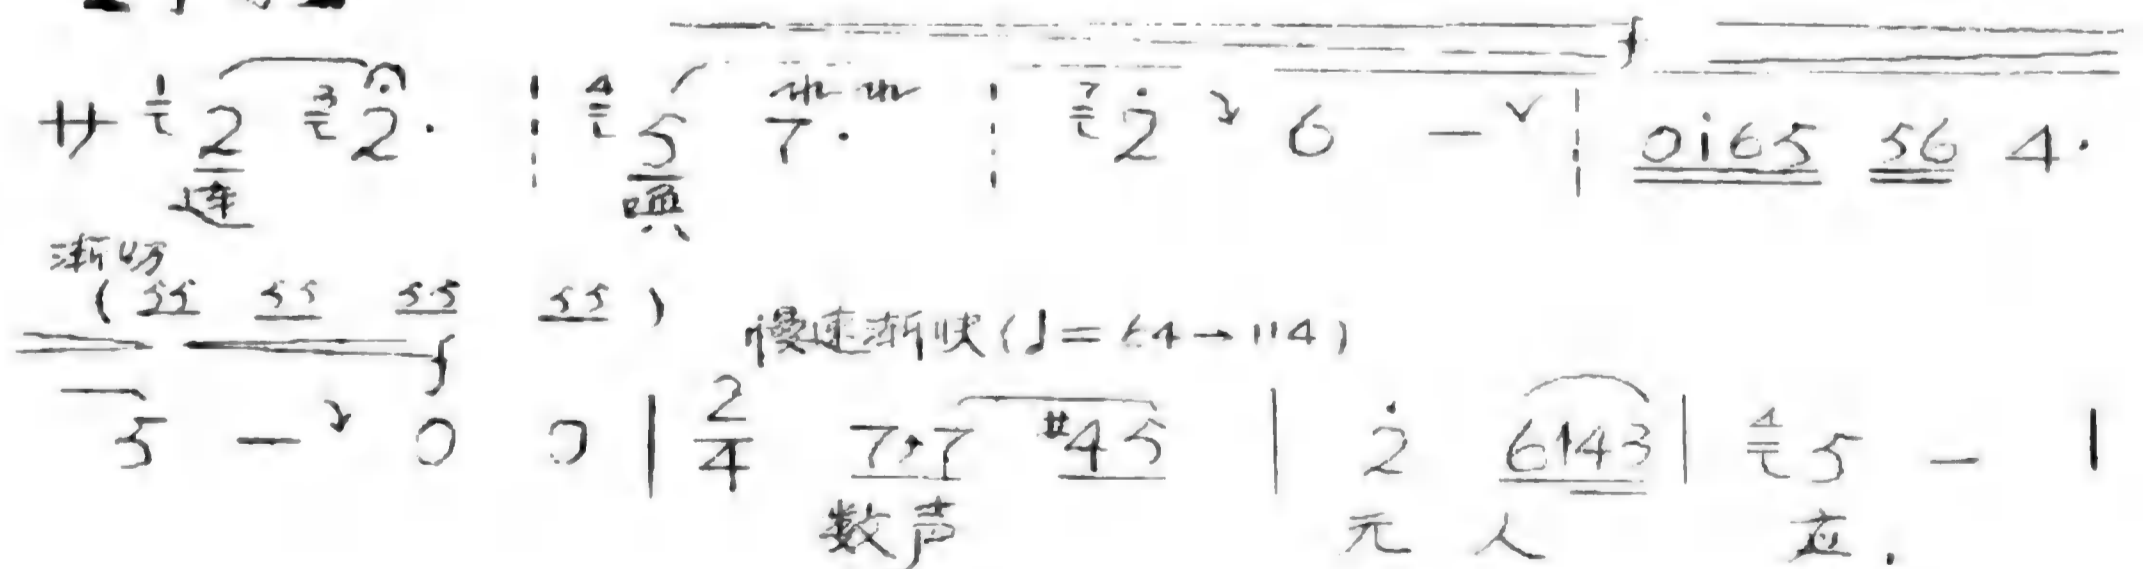 サ 1 2 3 2̇. ┆ 4 5 7. ┆ 7 2̇ ↘ 6 — ∨ ┆ 0i65 56 4.
连 唤
渐
(55 55 55 55) 慢速渐快(♩=64→114)
5 — ↘ 0 0 | 2/4 7·7 #45 | 2̇ 6#43 | 4 5 — |
数声 无 人 应,